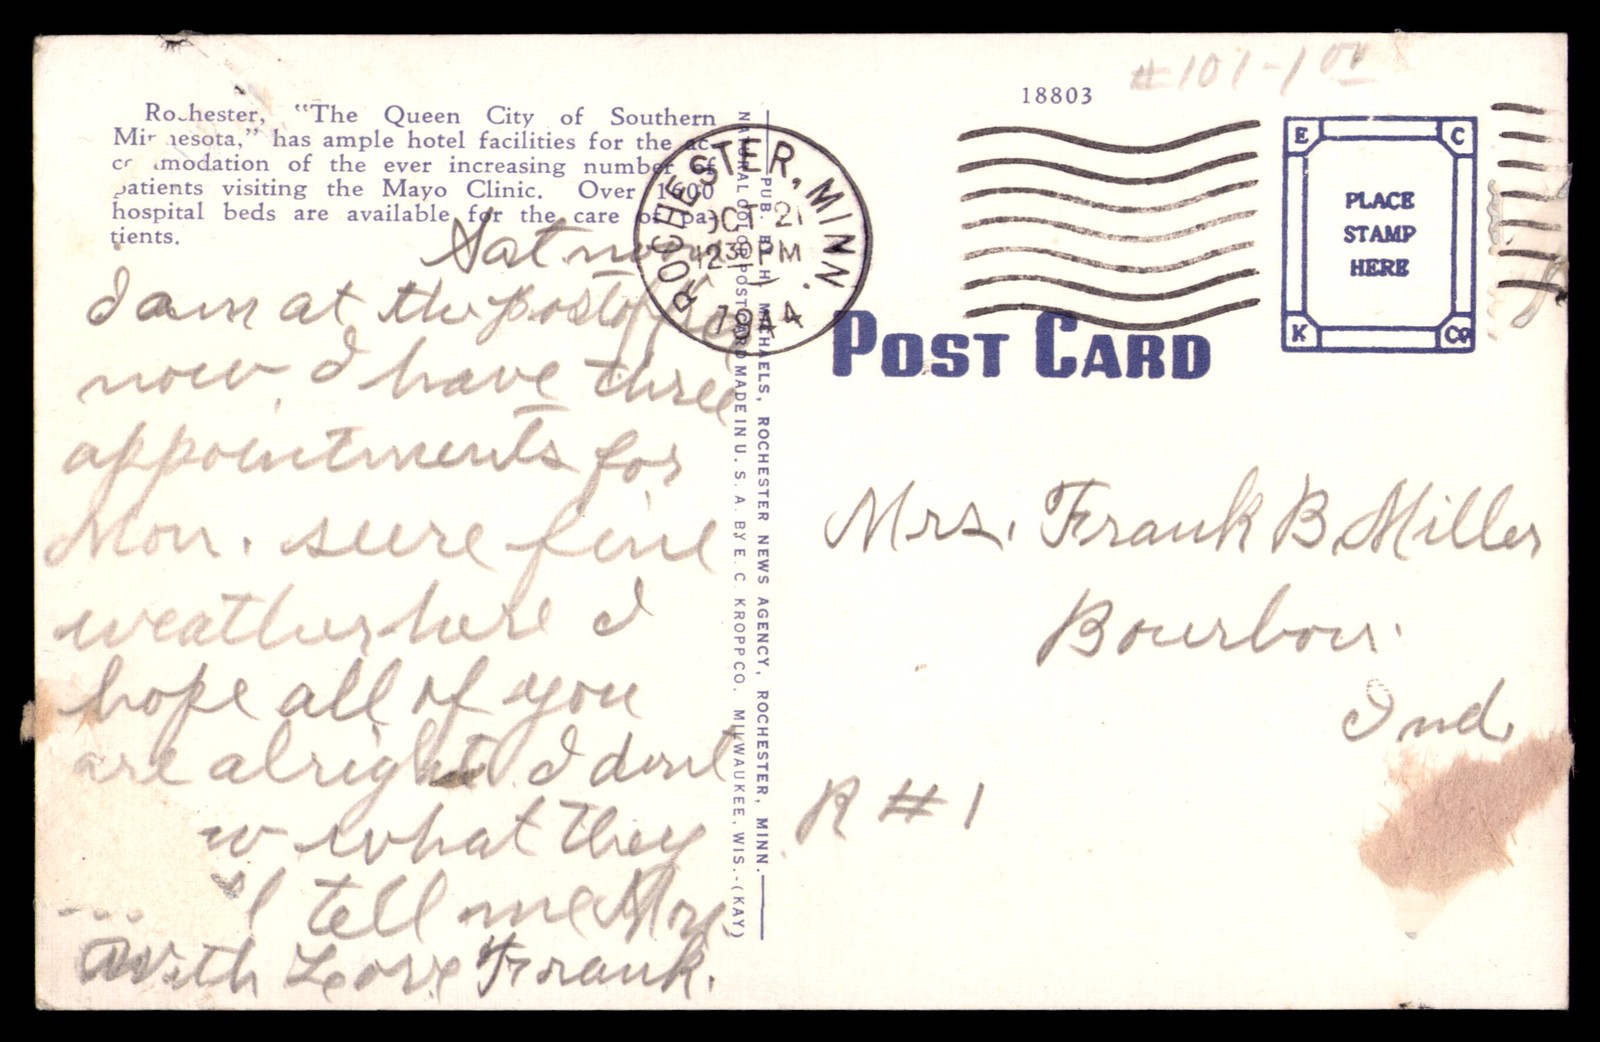 #101-1 00
18803
Rochester, "The Queen City of Southern
Minnesota," has ample hotel facilities for the ac-
commodation of the ever increasing number of
patients visiting the Mayo Clinic. Over 1600
hospital beds are available for the care of pa-
tients.
ROCHESTER, MINN.
OCT 21
12 30 PM
1944
E C
PLACE
STAMP
HERE
K Co
POST CARD
PUB. BY H. MICHAELS, ROCHESTER NEWS AGENCY, ROCHESTER, MINN.
NATURAL COLOR POST CARD MADE IN U. S. A. BY E. C. KROPP CO. MILWAUKEE, WIS.-(KAY)
Sat noon
I am at the post office
now, I have three
appointments for
Mon. sure fine
weather here I
hope all of you
are alright I dont
w what they
l tell me Mon.
With Love Frank.
Mrs. Frank B. Miller
Bourbon.
Ind.
R #1